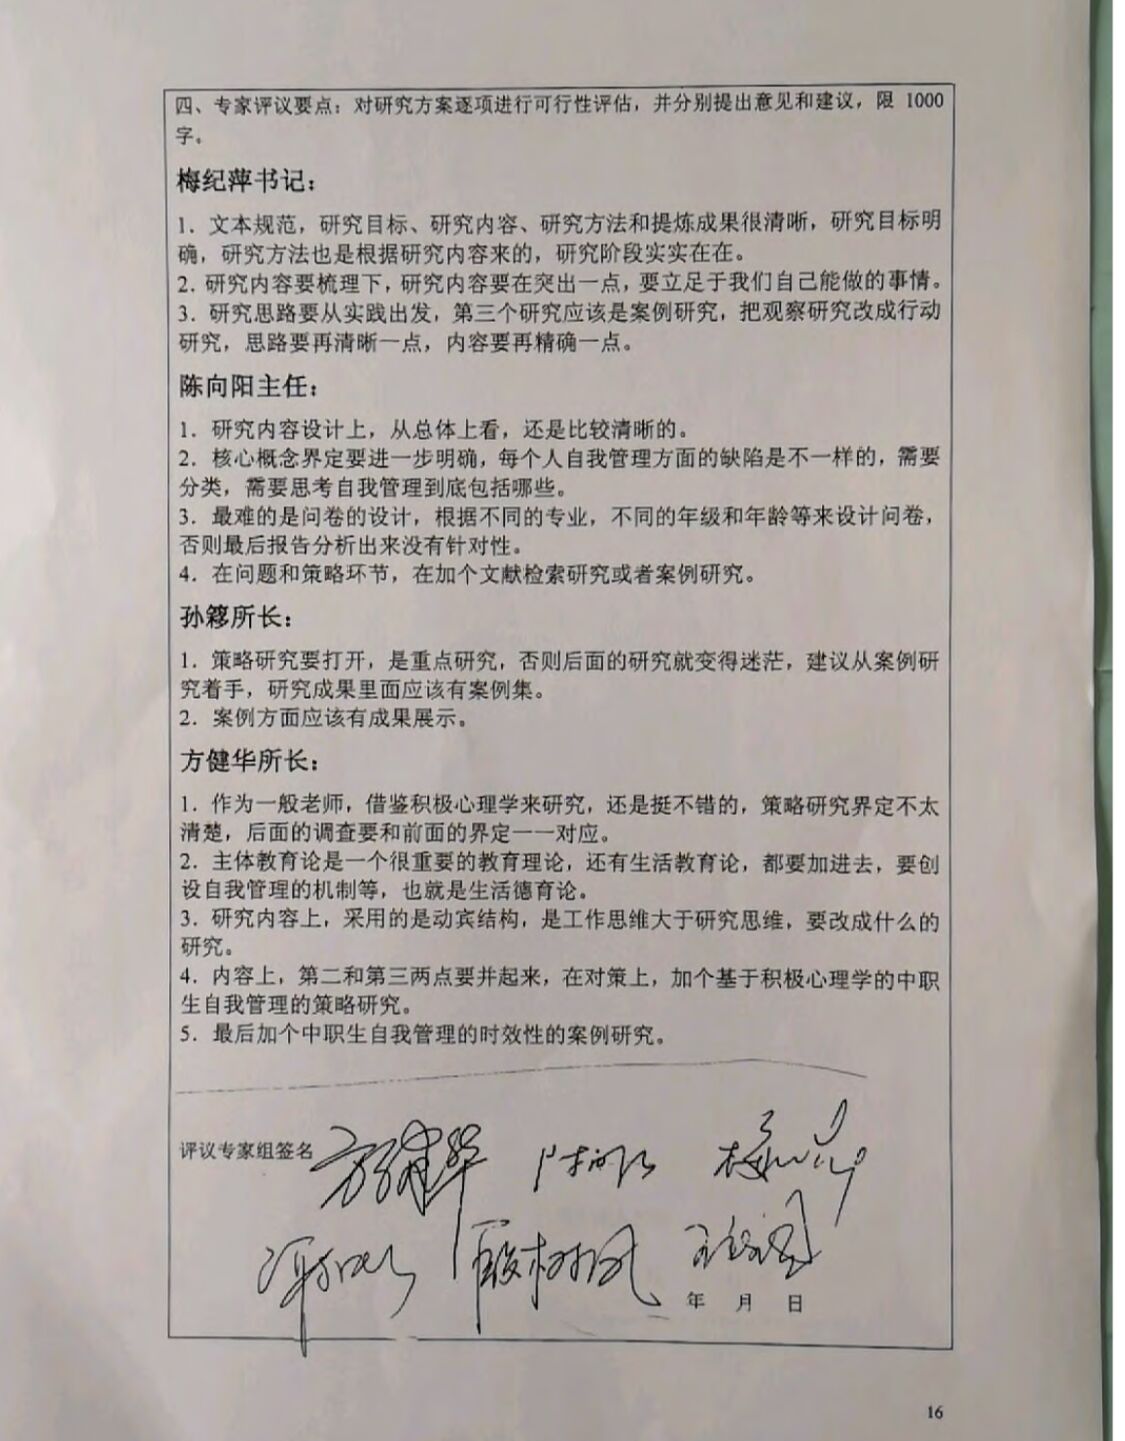 四、专家评议要点：对研究方案逐项进行可行性评估，并分别提出意见和建议，限 1000
字。
梅纪萍书记：
1．文本规范，研究目标、研究内容、研究方法和提炼成果很清晰，研究目标明
确，研究方法也是根据研究内容来的，研究阶段实实在在。
2．研究内容要梳理下，研究内容要在突出一点，要立足于我们自己能做的事情。
3．研究思路要从实践出发，第三个研究应该是案例研究，把观察研究改成行动
研究，思路要再清晰一点，内容要再精确一点。
陈向阳主任：
1．研究内容设计上，从总体上看，还是比较清晰的。
2．核心概念界定要进一步明确，每个人自我管理方面的缺陷是不一样的，需要
分类，需要思考自我管理到底包括哪些。
3．最难的是问卷的设计，根据不同的专业，不同的年级和年龄等来设计问卷，
否则最后报告分析出来没有针对性。
4．在问题和策略环节，在加个文献检索研究或者案例研究。
孙簃所长：
1．策略研究要打开，是重点研究，否则后面的研究就变得迷茫，建议从案例研
究着手，研究成果里面应该有案例集。
2．案例方面应该有成果展示。
方健华所长：
1．作为一般老师，借鉴积极心理学来研究，还是挺不错的，策略研究界定不太
清楚，后面的调查要和前面的界定一一对应。
2．主体教育论是一个很重要的教育理论，还有生活教育论，都要加进去，要创
设自我管理的机制等，也就是生活德育论。
3．研究内容上，采用的是动宾结构，是工作思维大于研究思维，要改成什么的
研究。
4．内容上，第二和第三两点要并起来，在对策上，加个基于积极心理学的中职
生自我管理的策略研究。
5．最后加个中职生自我管理的时效性的案例研究。
评议专家组签名 方健华 陈向阳 梅纪萍
年 月 日
16